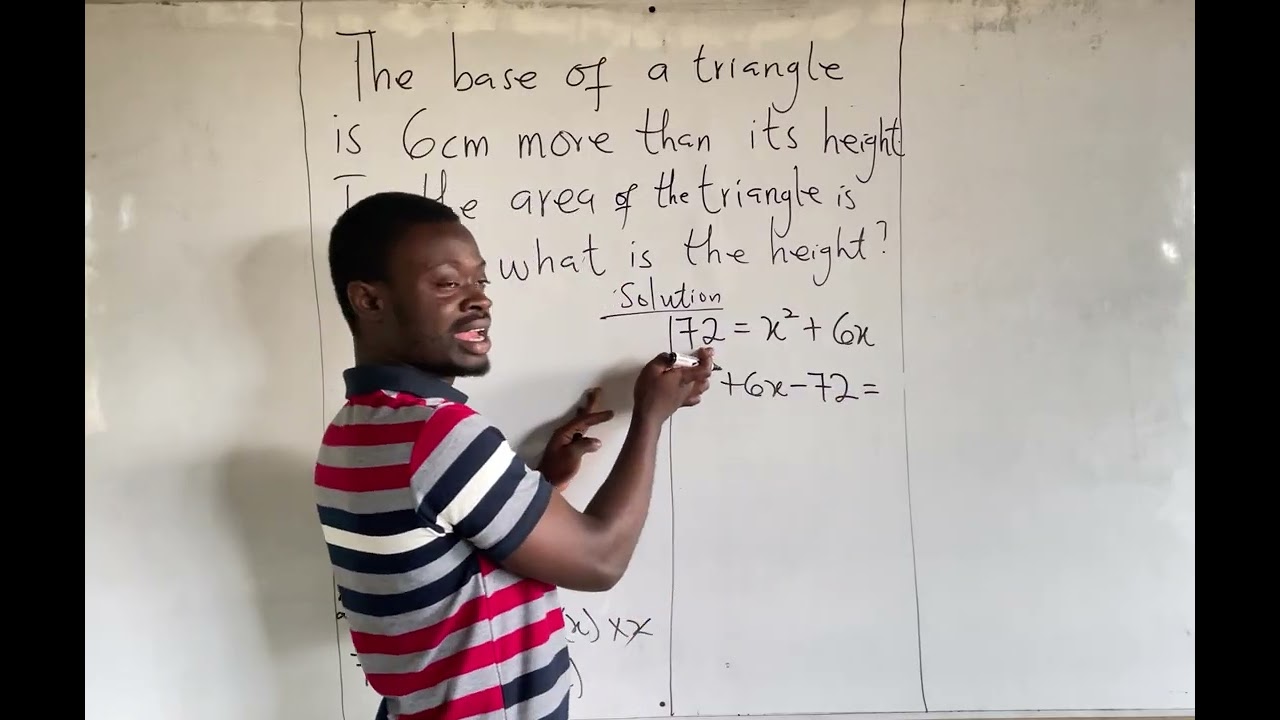 The base of a triangle
is 6cm more than its height
the area of the triangle is
what is the height?
Solution
72 = x² + 6x
+6x-72=
x) × x
)